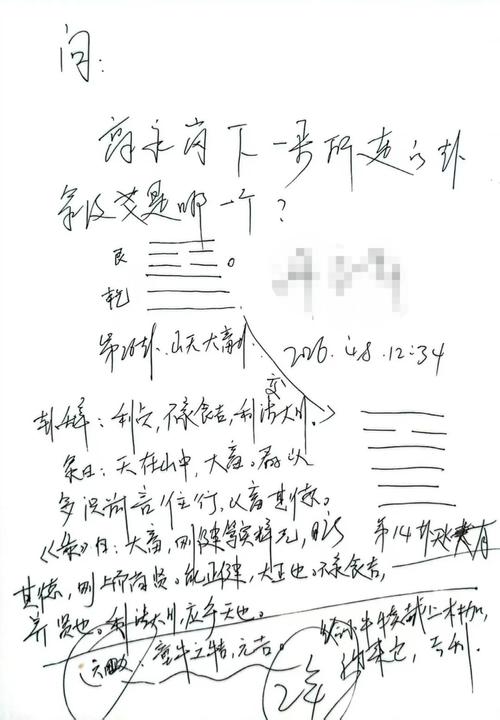 问:
下一步所走的卦
象及爻是哪一个?
艮
乾
第26卦.山天大畜卦. 2026.4.8.12:34
变
卦辞:利贞,不家食吉,利涉大川。
象曰:天在山中,大畜。君以
多识前言往行,以畜其德。
第14卦 大有
《彖》曰:大畜,刚健笃实辉光,日新
其德,刚上而尚贤。能止健,大正也。不家食吉,
养贤也。利涉大川,应乎天也。
六四:童牛之牿,元吉。
给小牛 上木枷,
2年